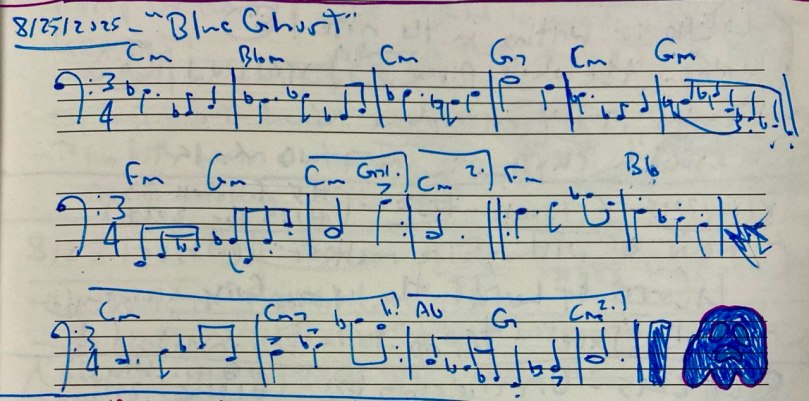 8/25/2025 - "Blue Ghost"
Cm Bbm Cm G7 Cm Gm
3 4
Fm Gm Cm G7 1. Cm 2. Fm Bb
3 4
Cm Cm7 1. Ab G Cm 2.
3 4